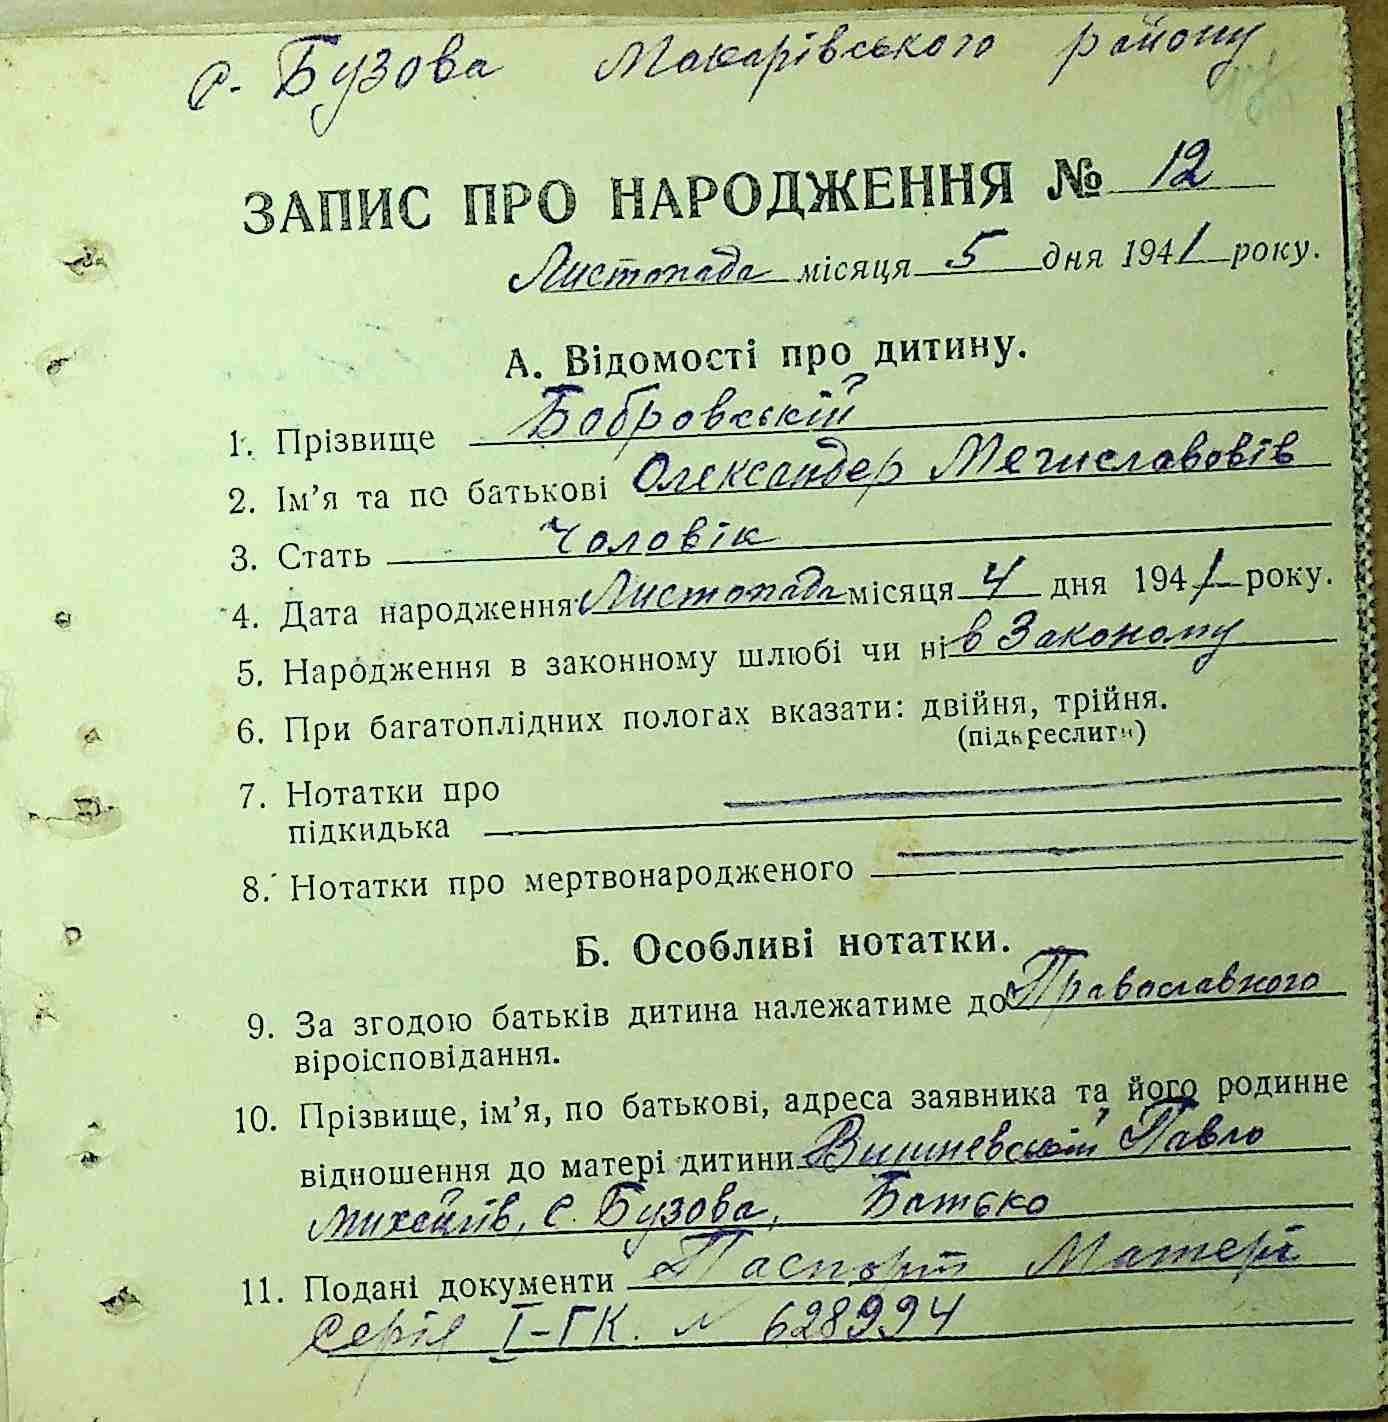 с. Бузова Макарівського району
ЗАПИС ПРО НАРОДЖЕННЯ № 12
Листопада місяця 5 дня 1941 року.
А. Відомості про дитину.
1. Прізвище Бобровській
2. Ім'я та по батькові Олександер Мечиславовів
3. Стать Чоловік
4. Дата народження Листопада місяця 4 дня 1941 року.
5. Народження в законному шлюбі чи ні в Законому
6. При багатоплідних пологах вказати: двійня, трійня.
(підкреслити)
7. Нотатки про
підкидька
8. Нотатки про мертвонародженого
Б. Особливі нотатки.
9. За згодою батьків дитина належатиме до Православного
віроісповідання.
10. Прізвище, ім'я, по батькові, адреса заявника та його родинне
відношення до матері дитини Вишневській Павло
Михайлів, с. Бузова, Батько
11. Подані документи Паспорт Матері
Серія І-ГК. № 628994